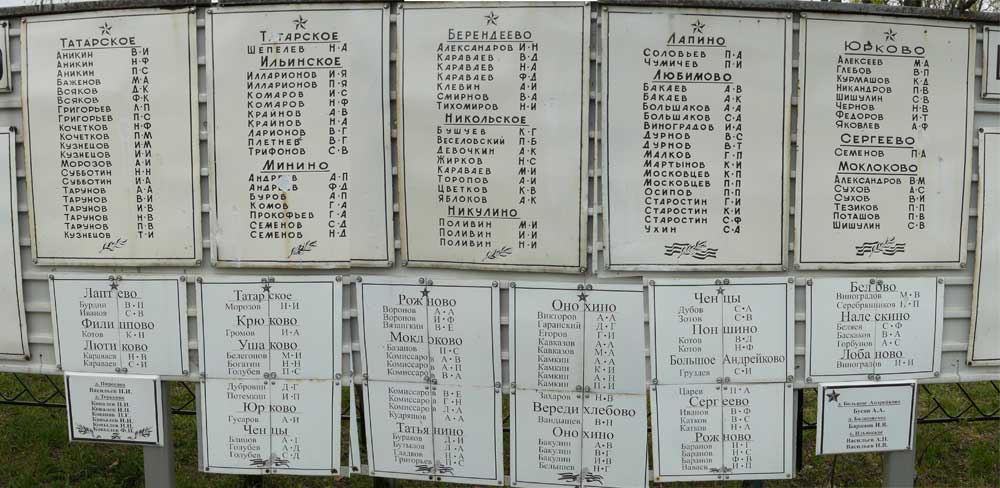 ТАТАРСКОЕ
АНИКИН В·И
АНИКИН Н·Ф
АНИКИН П·С
БАЖЕНОВ М·А
ВСЯКОВ Д·К
ВСЯКОВ Ф·К
ГРИГОРЬЕВ Л·П
ГРИГОРЬЕВ П·С
КОЧЕТКОВ Н·Ф
КОЧЕТКОВ П·М
КУЗНЕЦОВ И·М
КУЗНЕЦОВ И·И
МОРОЗОВ А·И
СУББОТИН Н·Н
СУББОТИН И·А
ТАРУНОВ А·А
ТАРУНОВ В·И
ТАРУНОВ И·В
ТАРУНОВ Н·В
ТАРУНОВ П·В
КУЗНЕЦОВ Т·И
ТАТАРСКОЕ
ШЕПЕЛЕВ Н·А
ИЛЬИНСКОЕ
ИЛЛАРИОНОВ И·Я
ИЛЛАРИОНОВ П·Я
КОМАРОВ И·С
КОМАРОВ Н·Ф
КРАЙНОВ А·В
КРАЙНОВ Н·А
ЛАРИОНОВ В·Г
ПЛЕТНЕВ В·Г
ТРИФОНОВ С·В
МИНИНО
АНДРЕЕВ А·П
АНДРЕЕВ Ф·Д
БУРОВ А·П
КОМОВ Г·А
ПРОКОФЬЕВ Г·А
СЕМЕНОВ С·Д
СЕМЕНОВ Н·Д
БЕРЕНДЕЕВО
АЛЕКСАНДРОВ И·Н
КАРАВАЕВ В·Д
КАРАВАЕВ Н·А
КАРАВАЕВ Ф·Д
КЛЕВИН А·И
СМИРНОВ В·А
ТИХОМИРОВ Н·И
НИКОЛЬСКОЕ
БУШУЕВ К·Г
ВЕСЕЛОВСКИЙ П·Б
ДЕВОЧКИН А·К
ЖИРКОВ Н·С
КАРАВАЕВ М·И
ТОРОПОВ А·И
ЦВЕТКОВ К·В
ЯБЛОКОВ А·К
НИКУЛИНО
ПОЛИВИН М·И
ПОЛИВИН И·И
ПОЛИВИН Н·И
ЛАПИНО
СОЛОВЬЕВ П·А
ЧУМИЧЕВ П·И
ЛЮБИМОВО
БАКАЕВ А·В
БАКАЕВ А·К
БОЛЬШАКОВ А·А
БОЛЬШАКОВ С·А
ВИНОГРАДОВ И·А
ДУРНОВ В·С
ДУРНОВ В·Т
МАЛКОВ Г·П
МАРТЫНОВ К·И
МОСКОВЦЕВ К·П
МОСКОВЦЕВ П·П
ОСИПОВ П·П
СТАРОСТИН Г·И
СТАРОСТИН К·И
СТАРОСТИН С·Ф
УХИН С·А
ЮРКОВО
АЛЕКСЕЕВ М·А
ГЛЕБОВ В·П
КУРМАШОВ К·Д
НИКАНДРОВ П·В
ШИШУЛИН С·В
ЧЕРНОВ Н·В
ФЕДОРОВ И·Т
ЯКОВЛЕВ А·Ф
СЕРГЕЕВО
СЕМЕНОВ П·А
МОКЛОКОВО
АЛЕКСАНДРОВ В·М
СУХОВ А·С
СУХОВ В·И
ТЕЗИКОВ П·П
ПОТАШОВ П·В
ШИШУЛИН С·В
Лаптево
Бурдин В·П
Иванов С·В
Филиппово
Котов К·И
Лютиково
Караваев Н·В
Караваев С·И
Татарское
Морозов П·И
Крюково
Громов И·А
Ушаково
Белегонов М·И
Богатин Н·Н
Голубев П·С
Дубровин Д·Г
Потемкин И·П
Юрково
Гусаров А·И
Ченцы
Блинов А·Г
Голубев А·Д
Голубев С·Д
Рожново
Воронов А·А
Воронов И·Ф
Вязанкин В·Е
Моклоково
Базанов П·С
Комиссаров А·В
Комиссаров А·П
Комиссаров В·А
Комиссаров В·Е
Комиссаров Г·Н
Комиссаров Д·А
Кудряшов А·А
Татьянино
Бураков Д·И
Бутылов Д·А
Сладков Н·А
Григорьев П·С
Онохино
Викторов А·А
Гаранский Д·Г
Егоров Г·И
Кавказов А·А
Кавказов М·А
Камкин А·Г
Камкин К·И
Камкин Н·А
Камкин П·П
Захаров Н·В
Вередихлебово
Вандышев В·Н
Онохино
Бакулин А·В
Бакулин В·А
Бакулин И·В
Белышев Н·Г
Ченцы
Дубов С·А
Зотов С·В
Поншино
Котов В·Д
Котов Н·Ф
Большое Андрейково
Груздев С·И
Царев П·А
Сергеево
Иванов В·Ф
Катков В·С
Катков Н·А
Рожново
Баранов Н·Г
Баранов Н·С
Наваев И·П
Белово
Виноградов М·В
Серебрянников Е·П
Налескино
Беляев С·Ф
Баскаков В·А
Горбунов А·С
Лобаново
Виноградов И·И
Васильев Н.И.
Ковалев П.П.
д. Большое Андрейково
Бусин А.А.
Баринов И.В.
Васильев А.П.
Васильев Н.В.